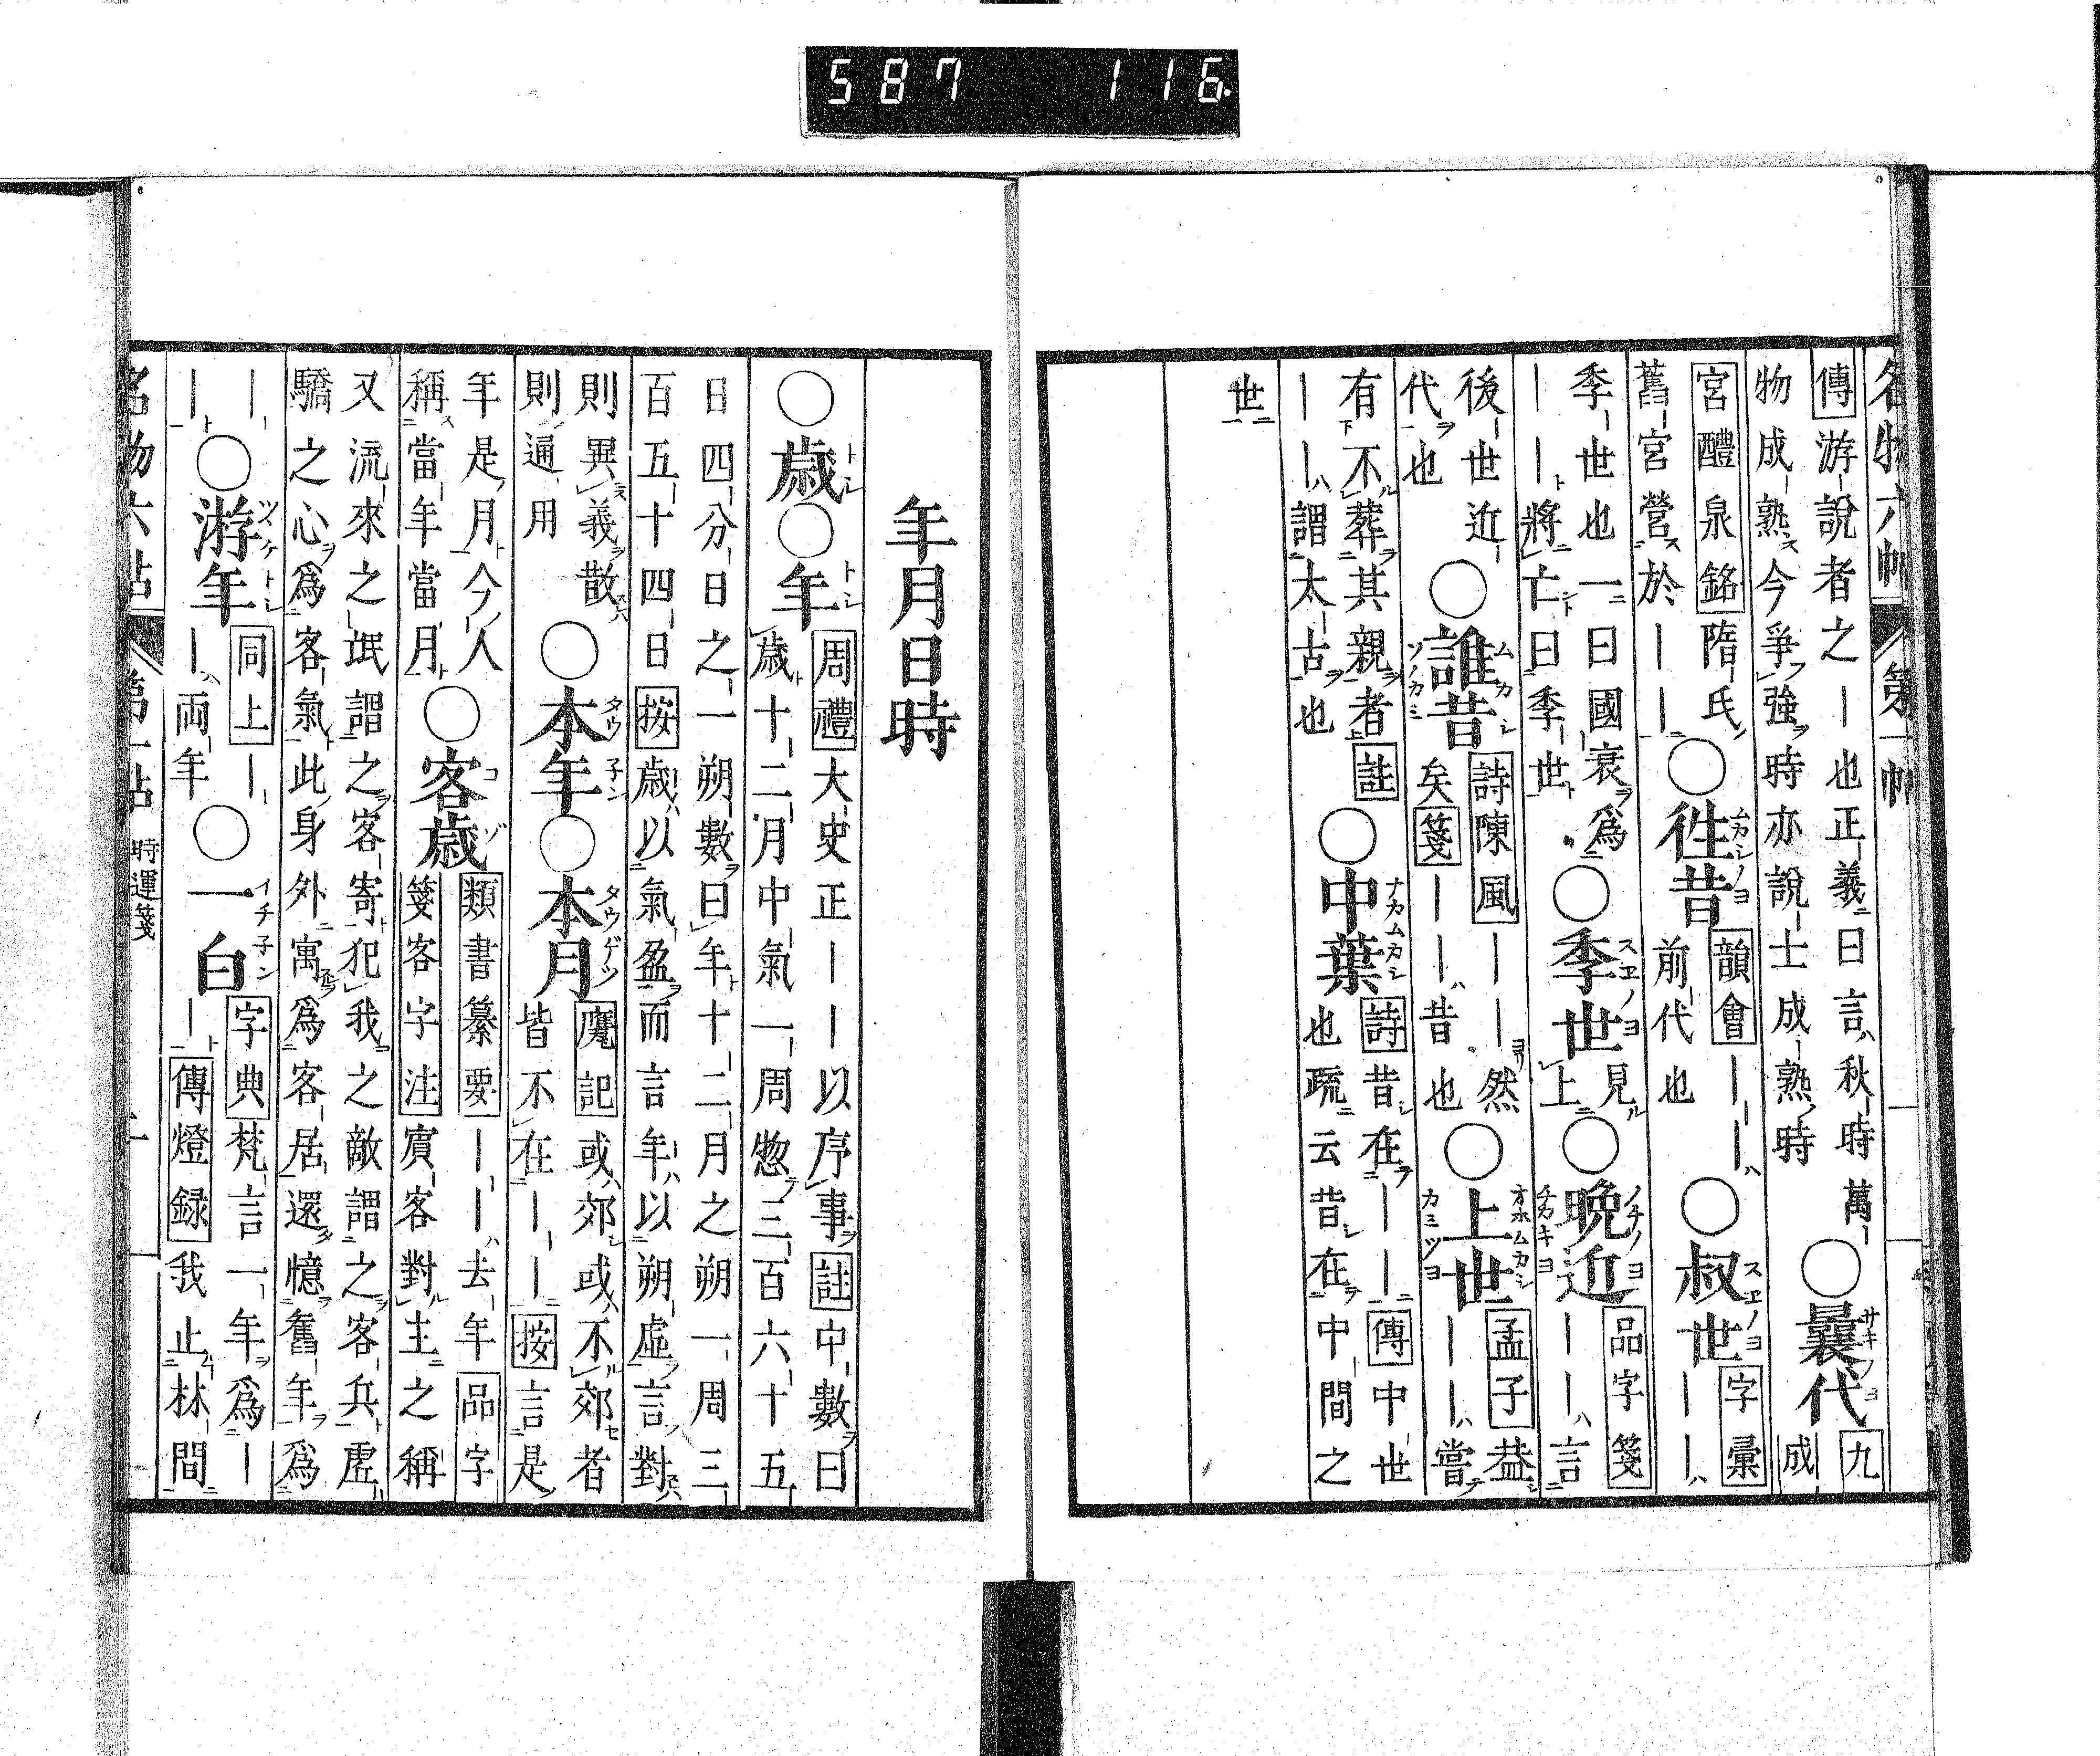 587 116
名物六帖 第一帖
傳游說者之—也正義曰言秋時萬—
物成熟今爭強時亦說士成熟時
○曩代
九
成
宮醴泉銘隋氏
舊宮營於——
○徃昔
韻會——
前代也
○叔世
字彙
——
季世也一曰國衰爲
——將亡曰季世
○季世
見
上
○晩近
品字箋
——言
後世近
代也
○誰昔
詩陳風——然
矣箋——昔也
○上世
孟子益
——嘗
有不葬其親者註
——謂太古也
○中葉
詩昔在——傳中世
也疏云昔在中間之
世
年月日時
○歳○年
周禮大史正——以序事註中數曰
歳十二月中氣一周惣三百六十五
日四分日之一朔數曰年十二月之朔一周三
百五十四日按歳以氣盈而言年以朔虛言對
則異義散
則通用
○本年○本月
或郊或不郊者
皆不在——按言是
年是月今人
稱當年當月
○客歳
類書纂要——去年品字
箋客字注賓客對主之稱
又流來之氓謂之客寄犯我之敵謂之客兵虛
驕之心爲客氣此身外寓爲客居還憶舊年爲
—
—
○游年
同上—
—兩年
○一白
字典梵言一年爲—
—傳燈録我止林間
名物六帖 第一帖 時運箋